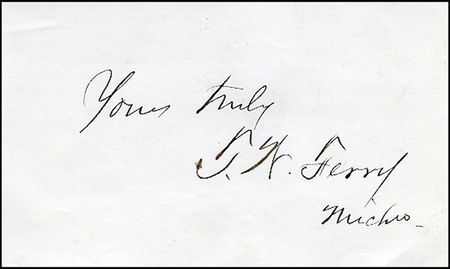 Yours truly
T. W. Ferry
Mich.